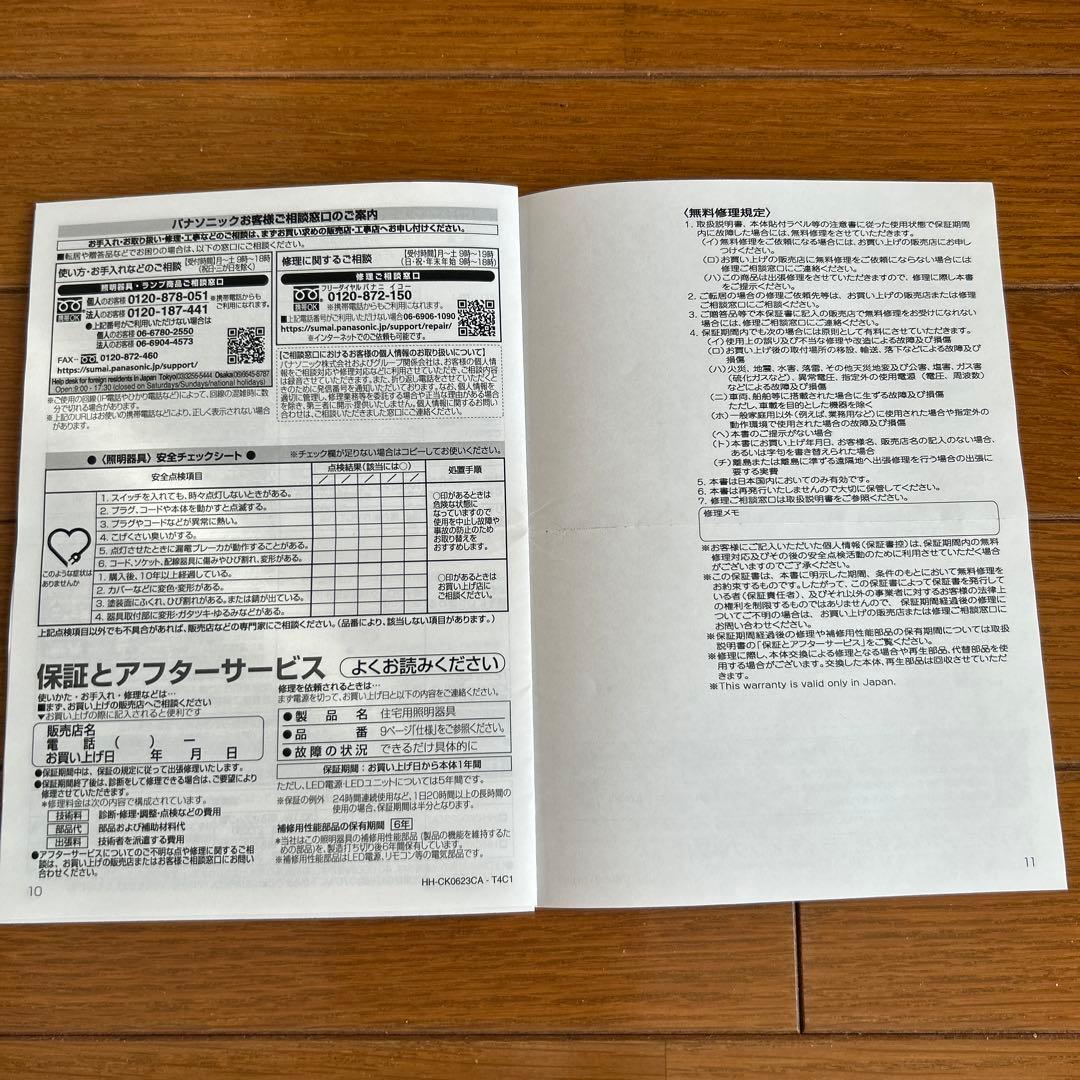 パナソニックお客様ご相談窓口のご案内
お手入れ・お取り扱い・修理・工事などのご相談は、まずお買い求めの販売店・工事店へお申し付けください。
■転居や贈答品などでお困りの場合は、以下の窓口にご相談ください。
使い方・お手入れなどのご相談 [受付時間]月〜土 9時〜18時
(祝日・三が日を除く)
照明器具・ランプ商品ご相談窓口
個人のお客様 0120-878-051 ※携帯電話からもご利用になれます。
法人のお客様 0120-187-441
●上記番号がご利用いただけない場合は
個人のお客様 06-6780-2550
法人のお客様 06-6904-4573
FAX 0120-872-460
https://sumai.panasonic.jp/support/
Help desk for foreign residents in Japan Tokyo(03)3256-5444 Osaka(06)6645-8787
Open:9:00 - 17:30 (closed on Saturdays/Sundays/national holidays)
※ご使用の回線(IP電話やひかり電話など)によって、回線の混雑時に数分で切れる場合があります。
※上記のURLはお使いの携帯電話などにより、正しく表示されない場合があります。
修理に関するご相談 [受付時間]月〜土 9時〜19時
(日・祝・年末年始 9時〜18時)
修理ご相談窓口
フリーダイヤル パナニ イコー
携帯OK 0120-872-150
※携帯電話からもご利用になれます。
■上記電話番号がご利用いただけない場合は 06-6906-1090
https://sumai.panasonic.jp/support/repair/
※インターネットでのご依頼も可能です。
【ご相談窓口におけるお客様の個人情報のお取り扱いについて】
パナソニック株式会社およびグループ関係会社は、お客様の個人情報をご相談対応や修理対応などに利用させていただき、ご相談内容は録音させていただきます。また、折り返し電話をさせていただくときのために発信番号を通知いただいております。なお、個人情報を適切に管理し、修理業務等を委託する場合や正当な理由がある場合を除き、第三者に開示・提供いたしません。個人情報に関するお問い合わせは、ご相談いただきました窓口にご連絡ください。
●〈照明器具〉安全チェックシート●
※チェック欄が足りない場合はコピーしてお使いください。
安全点検項目 点検結果(該当には○) 処置手順
このような症状はありませんか
1. スイッチを入れても、時々点灯しないときがある。
2. プラグ、コードや本体を動かすと点滅する。
3. プラグやコードなどが異常に熱い。
4. こげくさい臭いがする。
5. 点灯させたときに漏電ブレーカが動作することがある。
6. コード、ソケット、配線器具に傷みやひび割れ、変形がある。
○印があるときは
危険な状態に
なっていますので
使用を中止し故障や
事故の防止のため
お取り替えを
おすすめします。
1. 購入後、10年以上経過している。
2. カバーなどに変色・変形がある。
3. 塗装面にふくれ、ひび割れがある。または錆が出ている。
4. 器具取付部に変形・ガタツキ・ゆるみなどがある。
○印があるときは
お買い上げ店に
ご相談ください。
上記点検項目以外でも不具合があれば、販売店などの専門家にご相談ください。(品番により、該当しない項目があります。)
保証とアフターサービス よくお読みください
使いかた・お手入れ・修理などは…
■まず、お買い上げの販売店へご相談ください
▼お買い上げの際に記入されると便利です
販売店名
電 話 ( ) ー
お買い上げ日 年 月 日
●保証期間中は、保証の規定に従って出張修理いたします。
●保証期間終了後は、診断をして修理できる場合は、ご要望により修理させていただきます。
※修理料金は次の内容で構成されています。
技術料 診断・修理・調整・点検などの費用
部品代 部品および補助材料代
出張料 技術者を派遣する費用
●アフターサービスについてのご不明な点や修理に関するご相談は、お買い上げの販売店またはお客様ご相談窓口にお問い合わせください。
10
修理を依頼されるときは…
まず電源を切って、お買い上げ日と以下の内容をご連絡ください。
●製 品 名 住宅用照明器具
●品 番 9ページ「仕様」をご参照ください。
●故障の状況 できるだけ具体的に
保証期間:お買い上げ日から本体1年間
ただし、LED電源・LEDユニットについては5年間です。
※保証の例外 24時間連続使用など、1日20時間以上の長時間の使用の場合、保証期間は半分となります。
補修用性能部品の保有期間 6年
*当社はこの照明器具の補修用性能部品(製品の機能を維持するための部品)を、製造打ち切り後6年間保有しています。
※補修用性能部品はLED電源、リモコン等の電気部品です。
HH-CK0623CA - T4C1
〈無料修理規定〉
1. 取扱説明書、本体貼付ラベル等の注意書に従った使用状態で保証期間
内に故障した場合には、無料修理をさせていただきます。
(イ)無料修理をご依頼になる場合には、お買い上げの販売店にお申し
つけください。
(ロ)お買い上げの販売店に無料修理をご依頼にならない場合には
修理ご相談窓口にご連絡ください。
(ハ)この商品は出張修理をさせていただきますので、修理に際し本書
をご提示ください。
2. ご転居の場合の修理ご依頼先等は、お買い上げの販売店または修理
ご相談窓口にご相談ください。
3. ご贈答品等で本保証書に記入の販売店で無料修理をお受けになれない
場合には、修理ご相談窓口にご連絡ください。
4. 保証期間内でも次の場合には原則として有料にさせていただきます。
(イ)使用上の誤り及び不当な修理や改造による故障及び損傷
(ロ)お買い上げ後の取付場所の移設、輸送、落下などによる故障及び
損傷
(ハ)火災、地震、水害、落雷、その他天災地変及び公害、塩害、ガス害
(硫化ガスなど)、異常電圧、指定外の使用電源(電圧、周波数)
などによる故障及び損傷
(ニ)車両、船舶等に搭載された場合に生ずる故障及び損傷
ただし、車載を目的とした機器を除く
(ホ)一般家庭用以外(例えば、業務用など)に使用された場合や指定外の
動作環境で使用された場合の故障及び損傷
(ヘ)本書のご提示がない場合
(ト)本書にお買い上げ年月日、お客様名、販売店名の記入のない場合、
あるいは字句を書き替えられた場合
(チ)離島または離島に準ずる遠隔地へ出張修理を行う場合の出張に
要する実費
5. 本書は日本国内においてのみ有効です。
6. 本書は再発行いたしませんので大切に保管してください。
7. 修理ご相談窓口は取扱説明書をご参照ください。
修理メモ
※お客様にご記入いただいた個人情報(保証書控)は、保証期間内の無料
修理対応及びその後の安全点検活動のために利用させていただく場合
がございますのでご了承ください。
※この保証書は、本書に明示した期間、条件のもとにおいて無料修理を
お約束するものです。したがって、この保証書によって保証書を発行して
いる者(保証責任者)、及びそれ以外の事業者に対するお客様の法律上
の権利を制限するものではありませんので、保証期間経過後の修理に
ついてご不明の場合は、お買い上げの販売店または修理ご相談窓口に
お問い合わせください。
※保証期間経過後の修理や補修用性能部品の保有期間については取扱
説明書の「保証とアフターサービス」をご覧ください。
※修理に際し、本体交換による修理となる場合や再生部品、代替部品を使
用する場合がございます。交換した本体、再生部品は回収させていただ
きます。
※This warranty is valid only in Japan.
11